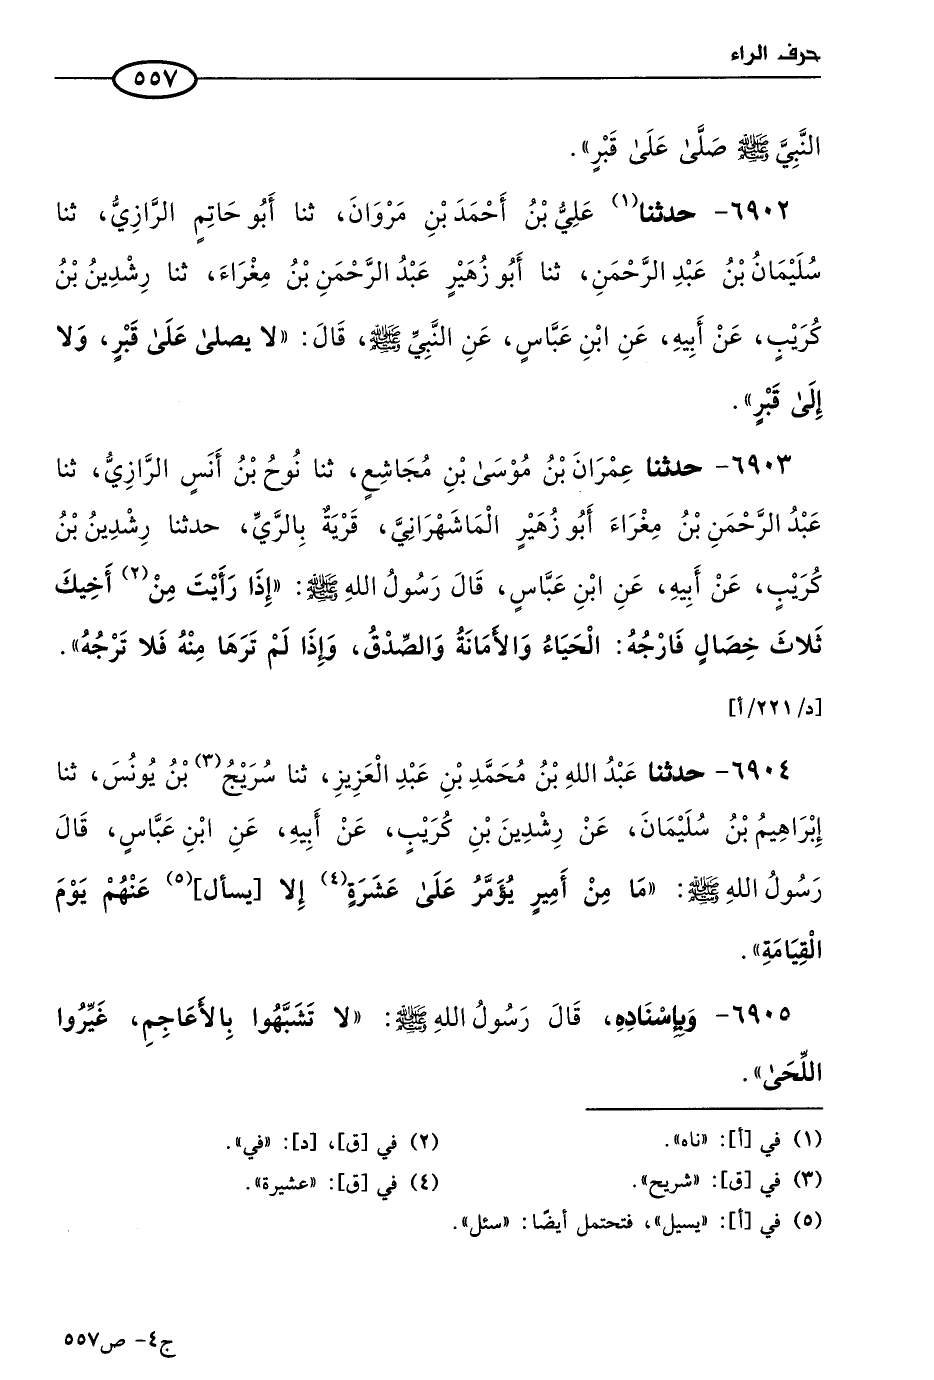 حرف الراء
٥٥٧
النَّبِيَّ ﷺ صَلَّىٰ عَلَىٰ قَبْرٍ».
٦٩٠٢- حدثنا(١) عَلِيُّ بْنُ أَحْمَدَ بْنِ مَرْوَانَ، ثنا أَبُو حَاتِمٍ الرَّازِيُّ، ثنا
سُلَيْمَانُ بْنُ عَبْدِ الرَّحْمَنِ، ثنا أَبُو زُهَيْرٍ عَبْدُ الرَّحْمَنِ بْنُ مِغْرَاءَ، ثنا رِشْدِينُ بْنُ
كُرَيْبٍ، عَنْ أَبِيهِ، عَنِ ابْنِ عَبَّاسٍ، عَنِ النَّبِيِّ ﷺ، قَالَ: «لا يصلىٰ عَلَىٰ قَبْرٍ، وَلا
إِلَىٰ قَبْرٍ».
٦٩٠٣- حدثنا عِمْرَانَ بْنُ مُوْسَىٰ بْنِ مُجَاشِعٍ، ثنا نُوحُ بْنُ أَنَسٍ الرَّازِيُّ، ثنا
عَبْدُ الرَّحْمَنِ بْنُ مِغْرَاءَ أَبُو زُهَيْرٍ الْمَاشَهْرَانِيَّ، قَرْيَةٌ بِالرَّيِّ، حدثنا رِشْدِينُ بْنُ
كُرَيْبٍ، عَنْ أَبِيهِ، عَنِ ابْنِ عَبَّاسٍ، قَالَ رَسُولُ اللهِ ﷺ: «إِذَا رَأَيْتَ مِنْ(٢) أَخِيكَ
ثَلاثَ خِصَالٍ فَارْجُهُ: الْحَيَاءُ وَالأَمَانَةُ وَالصِّدْقُ، وَإِذَا لَمْ تَرَهَا مِنْهُ فَلا تَرْجُهُ».
[د/٢٢١/أ]
٦٩٠٤- حدثنا عَبْدُ اللهِ بْنُ مُحَمَّدِ بْنِ عَبْدِ الْعَزِيزِ، ثنا سُرَيْجُ(٣) بْنُ يُونُسَ، ثنا
إِبْرَاهِيمُ بْنُ سُلَيْمَانَ، عَنْ رِشْدِينَ بْنِ كُرَيْبٍ، عَنْ أَبِيهِ، عَنِ ابْنِ عَبَّاسٍ، قَالَ
رَسُولُ اللهِ ﷺ: «مَا مِنْ أَمِيرٍ يُؤَمَّرُ عَلَىٰ عَشَرَةٍ(٤) إِلا [يسأل](٥) عَنْهُمْ يَوْمَ
الْقِيَامَةِ».
٦٩٠٥- وَبِإِسْنَادِهِ، قَالَ رَسُولُ اللهِ ﷺ: «لا تَشَبَّهُوا بِالأَعَاجِمِ، غَيِّرُوا
اللِّحَىٰ».
(١) في [أ]: «ناه». (٢) في [ق]، [د]: «في».
(٣) في [ق]: «شريح». (٤) في [ق]: «عشيرة».
(٥) في [أ]: «يسيل»، فتحتمل أيضًا: «سئل».
ج٤- ص٥٥٧